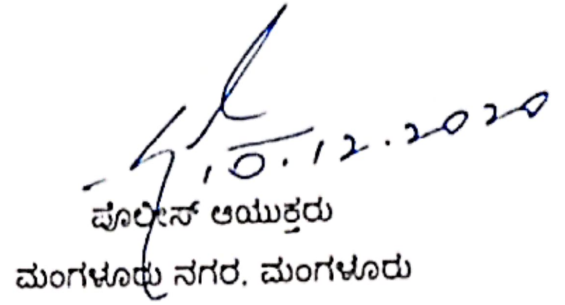 10.12.2020
ಪೊಲೀಸ್ ಆಯುಕ್ತರು
ಮಂಗಳೂರು ನಗರ, ಮಂಗಳೂರು